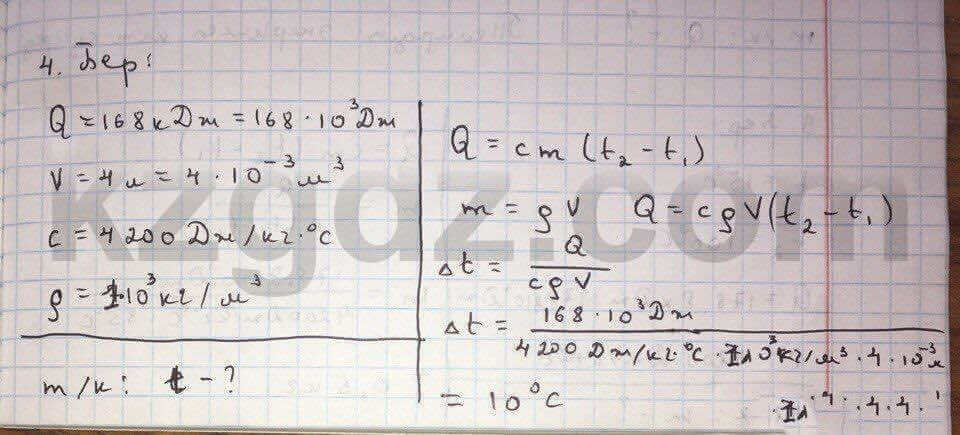 4. Бер:
Q = 168 кДж = 168 · 10³ Дж
V = 4 л = 4 · 10⁻³ м³
c = 4200 Дж/кг·°C
ρ = 10³ кг/м³
т/к: t - ?
Q = cm (t₂ - t₁)
m = ρV Q = cρV(t₂ - t₁)
Δt = Q / cρV
Δt = 168 · 10³ Дж / 4200 Дж/кг·°C · 10³ кг/м³ · 4 · 10⁻³ м
= 10°C
kzgdz.com